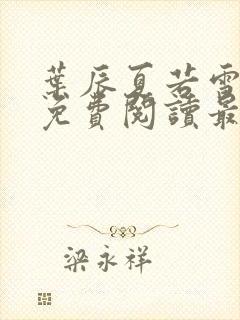 葉辰夏若雪
免費閱讀最
梁永祥